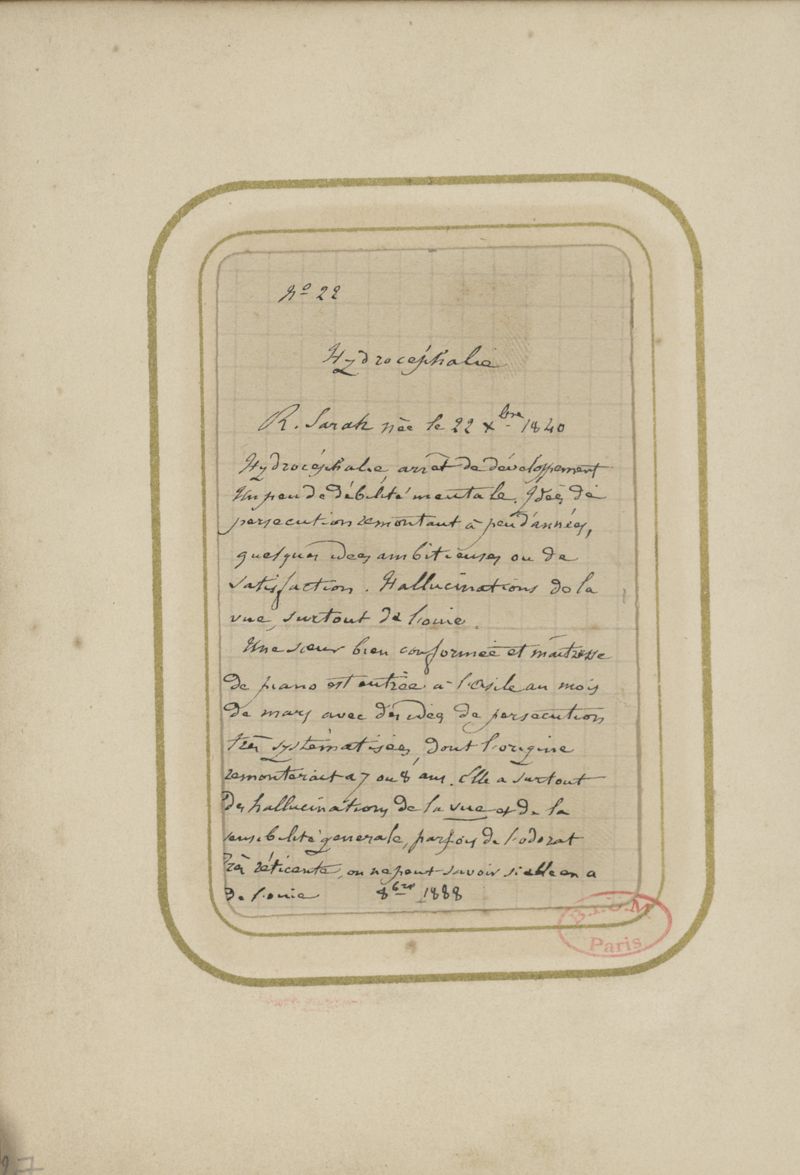 No 22
Hydrocéphalie
R. Sarah née le 22 Xbre 1840
Hydrocéphalie arrêt de développement
Un peu de débilité mentale. Idées de
persecution remontant à peu d'années,
quelques idées ambitieuses ou de
satisfaction. Hallucinations de la
vue, surtout de l'ouie.
Une sœur bien conformée et maîtresse
de piano est entrée à l'Asile au mois
de mars avec des idées de persecution
très systématisées, dont l'origine
remonterait à 7 ou 8 ans. Elle a surtout
des hallucinations de la vue et de la
sensibilité generale, parfois de l'odorat
très réticente, on ne peut savoir si elle en a
de l'ouie 8bre 1888
B.I.U.M
Paris